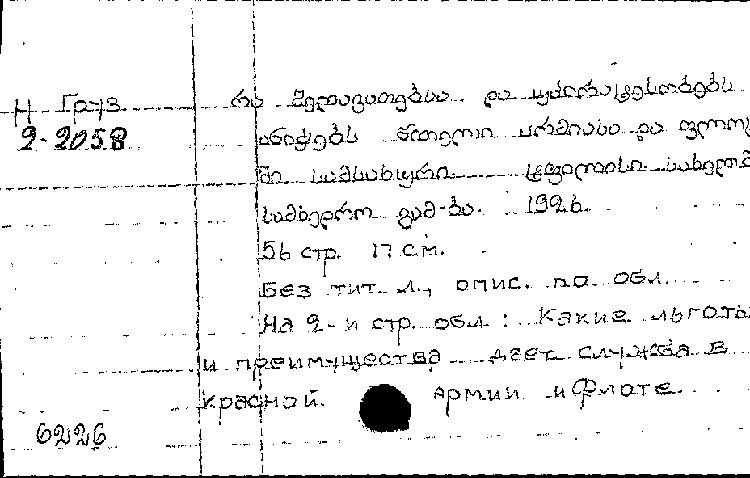 Н Груз
2-2058
რა შეღავათებსა და უპირატესობებს
ანიჭებს წითელი არმიასა და ფლოტ
ში სამსახური. ტფილისი. სახელმ
სამხედრო გამ-ბა. 1926.
56 стр. 17 с.м.
Без тит. л., опис. по обл.
На 2-й стр. обл: Какие льготы
и преимущества дает служба в
красной Армии и Флоте.
6226